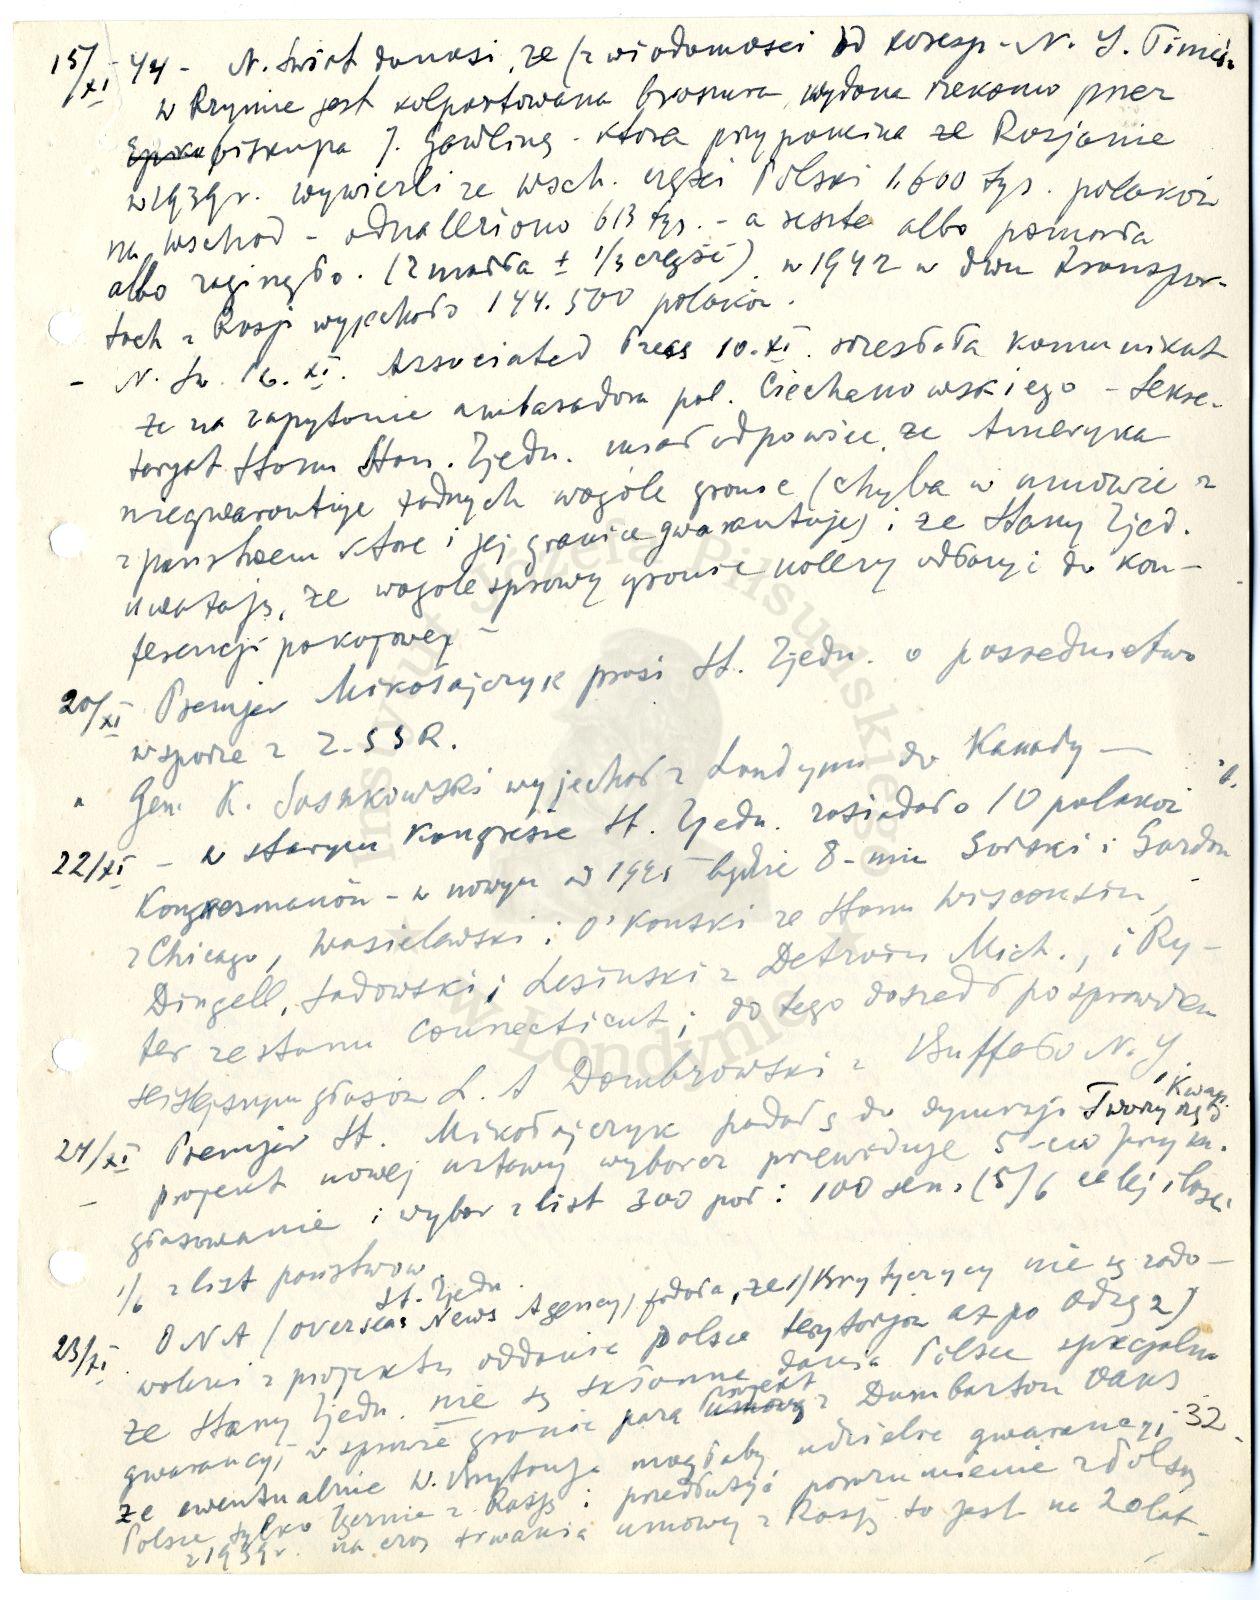 15/XI 44 - N. Świat donosi, że (z wiadomości od koresp. N. Y. Times'a
w Rzymie jest kolportowana broszura wydana rzekomo przez
biskupa J. Gawlinę - która przypomina że Rosjanie
w 1939 r. wywieźli ze wsch. części Polski 1,600 tys. polaków
na wschód - odnaleziono 613 tys. - a reszta albo pomarła
albo zaginęła. (zmarła ± 1/3 część). w 1942 w dwu transpor-
tach z Rosji wyjechało 144.500 polaków.
- N. Św. 16.XI. Associated Press 10.XI. komunikat
że na zapytanie ambasadora pol. Ciechanowskiego - Sekre-
tarjat Stanu Stan. Zjedn. miał odpowiedź, że Ameryka
niegwarantuje żadnych wogóle granic (chyba w umowie z
z państwem które i jej granice gwarantuje) i że Stany Zjed.
uważają, że wogóle sprawy granic należy odłożyć do kon-
ferencji pokojowej -
20/XI Premjer Mikołajczyk prosi St. Zjedn. o pośrednictwo
w sporze z Z.SSR.
" Gen. K. Sosnkowski wyjechał z Londynu do Kanady -
22/XI - w starym Kongresie St. Zjedn. zasiadało 10 polaków
Kongresmanów - w nowym od 1945 będzie 8-miu Gorski i Gordon
z Chicago, Wasielewski i O'Konski ze Stanu Wisconsin,
Dingell, Sadowski i Lesinski z Detroit Mich., i Ry-
ter ze stanu Connecticut; do tego doszedł po sprawdzen
ściślejszym głosów L. A Dombrowski z Buffalo N.Y.
24/XI Premjer St. Mikołajczyk podał się do dymisji Tworzy rząd Kwap.
- projekt nowej ustawy wyborcz przewiduje 5-cio przym.
głosowanie i wybór z list 300 poł i 100 sen. (5/6 całej ilości
1/6 z list państwow.
23/XI ONA (Overseas News Agency) St. Zjedn. podała, że 1/ Brytyjczycy nie są zado-
woleni z projektu oddania Polsce terytorjów aż po Odrę 2)
że Stany Zjedn. nie są skłonne dania Polsce specjaln
gwarancyj w sprawie granic poza projekt z Dumbarton Oaks
że ewentualnie W. Brytanja mogłaby udzielić gwarancyj 32
Polsce tylko łącznie z Rosją i przedłużyć porozumienie z Polską
z 1939 r. na czas trwania umowy z Rosją to jest na 20 lat.
Instytut Józefa Piłsudskiego
w Londynie